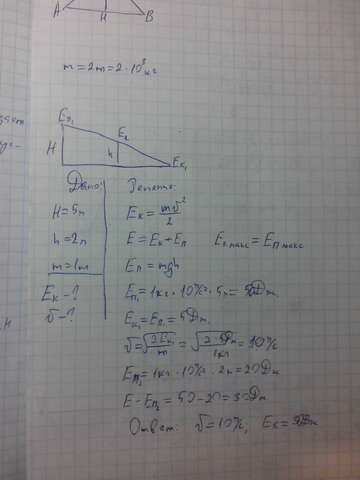 A H B
m = 2т = 2 · 10³ кг
Eп₁
H
E₂
h
Eк₁
Дано:
H = 5м
h = 2м
m = 1кг
Eк - ?
v - ?
Решение:
Eк = mv²/2
E = Eк + Eп
Eк макс = Eп макс
Eп = mgh
Eп₁ = 1кг · 10м/с² · 5м = 50Дж
Eк₁ = Eп₁ = 50Дж
v = √(2Eк/m) = √(2·50Дж/1кг) = 10м/с
Eп₂ = 1кг · 10м/с² · 2м = 20Дж
E - Eп₂ = 50 - 20 = 30Дж
Ответ: v = 10м/с, Eк = 30Дж